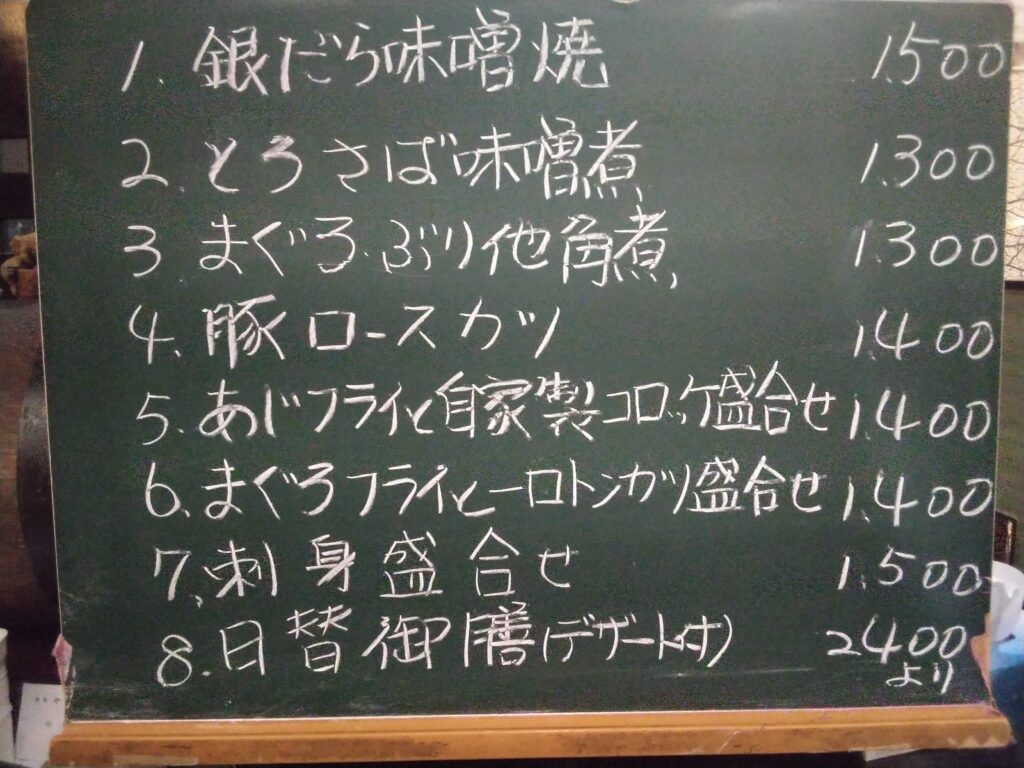 1. 銀だら味噌焼 1.500
2. とろさば味噌煮 1.300
3 まぐろ・ぶり他角煮 1.300
4. 豚ロースカツ 1.400
5. あじフライと自家製コロッケ盛合せ 1.400
6. まぐろフライと一口トンカツ盛合せ 1.400
7. 刺身盛合せ 1.500
8. 日替御膳(デザート付) 2400
より